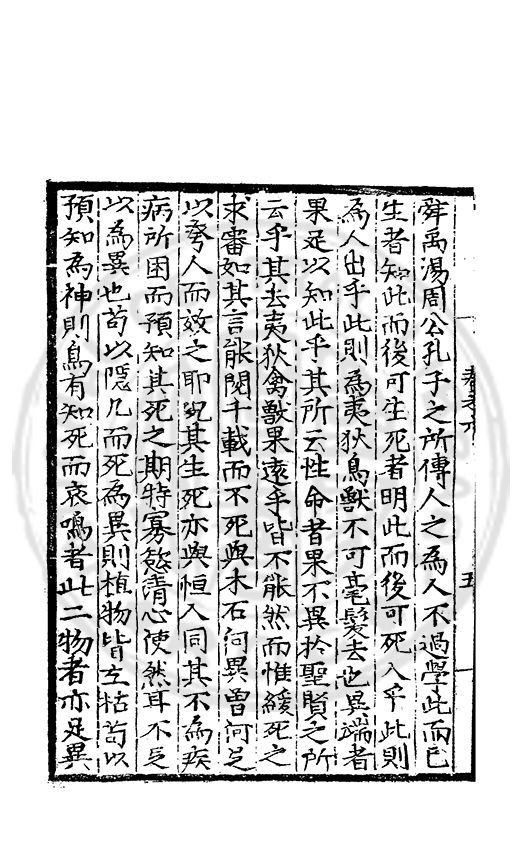 舜禹湯周公孔子之所傳人之為人不過學此而已
生者知此而後可生死者明此而後可死入乎此則
為人出乎此則為夷狄鳥獸不可毫髮去也異端者
果足以知此乎其所云性命者果不異於聖賢之所
云乎其去夷狄禽獸果遠乎皆不能然而惟緩死之
求審如其言能閱千載而不死與木石何異曽何足
以夸人而效之耶況其生死亦與恒人同其不為疾
病所困而預知其死之期特寡慾清心使然耳不足
以為異也苟以隱几而死為異則植物皆立枯苟以
預知為神則鳥有知死而哀鳴者此二物者亦足異
五